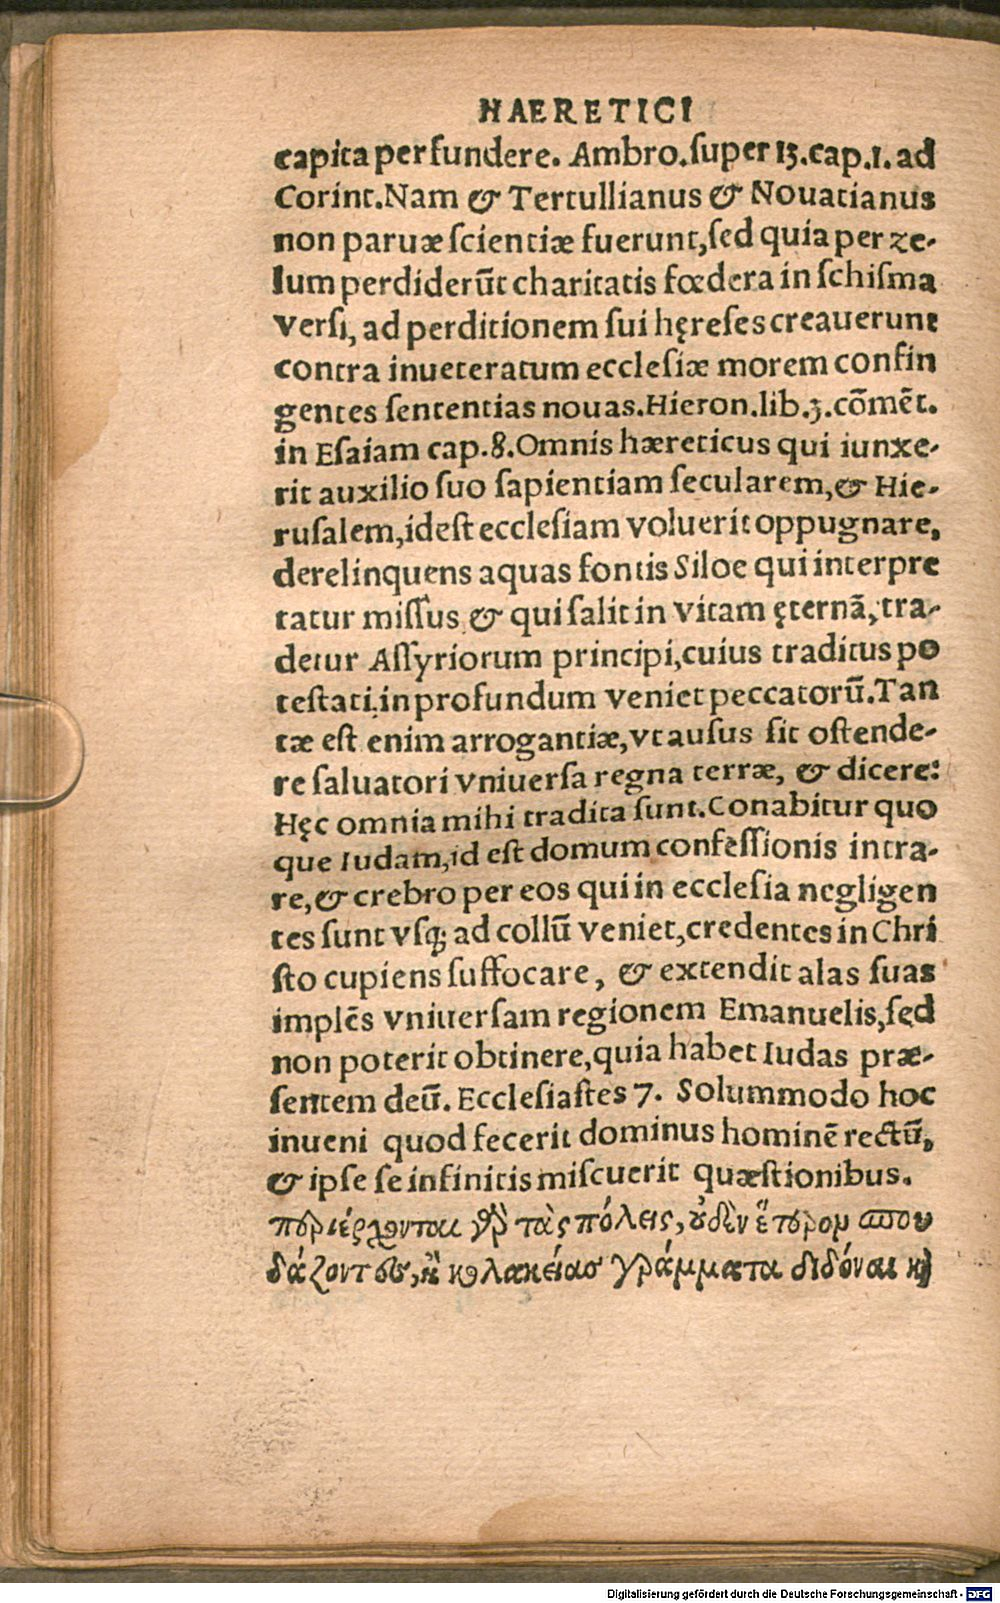 HAERETICI
capita perfundere. Ambro.super 13.cap.1. ad
Corint.Nam & Tertullianus & Nouatianus
non paruæ scientiæ fuerunt,sed quia per ze-
lum perdiderūt charitatis fœdera in schisma
versi, ad perditionem sui hęreses creauerunt
contra inueteratum ecclesiæ morem confin
gentes sententias nouas.Hieron.lib.3.cōmēt.
in Esaiam cap.8.Omnis hæreticus qui iunxe-
rit auxilio suo sapientiam secularem,& Hie-
rusalem,idest ecclesiam voluerit oppugnare,
derelinquens aquas fontis Siloe qui interpre
tatur missus & qui salit in vitam ęternā, tra-
detur Assyriorum principi,cuius traditus po
testati in profundum veniet peccatorū.Tan
tæ est enim arrogantiæ,vt ausus sit ostende-
re saluatori vniuersa regna terræ, & dicere:
Hęc omnia mihi tradita sunt.Conabitur quo
que Iudam,id est domum confessionis intra-
re,& crebro per eos qui in ecclesia negligen
tes sunt vsq; ad collū veniet,credentes in Chri
sto cupiens suffocare, & extendit alas suas
implēs vniuersam regionem Emanuelis,sed
non poterit obtinere,quia habet Iudas præ-
sentem deū. Ecclesiastes 7. Solummodo hoc
inueni quod fecerit dominus hominē rectū,
& ipse se infinitis miscuerit quæstionibus.
περιέρχονται γὰρ τὰς πόλεις, οὐδὲν ἕτερον σπου
δάζοντες, ἢ κολακείας γράμματα διδόναι καὶ